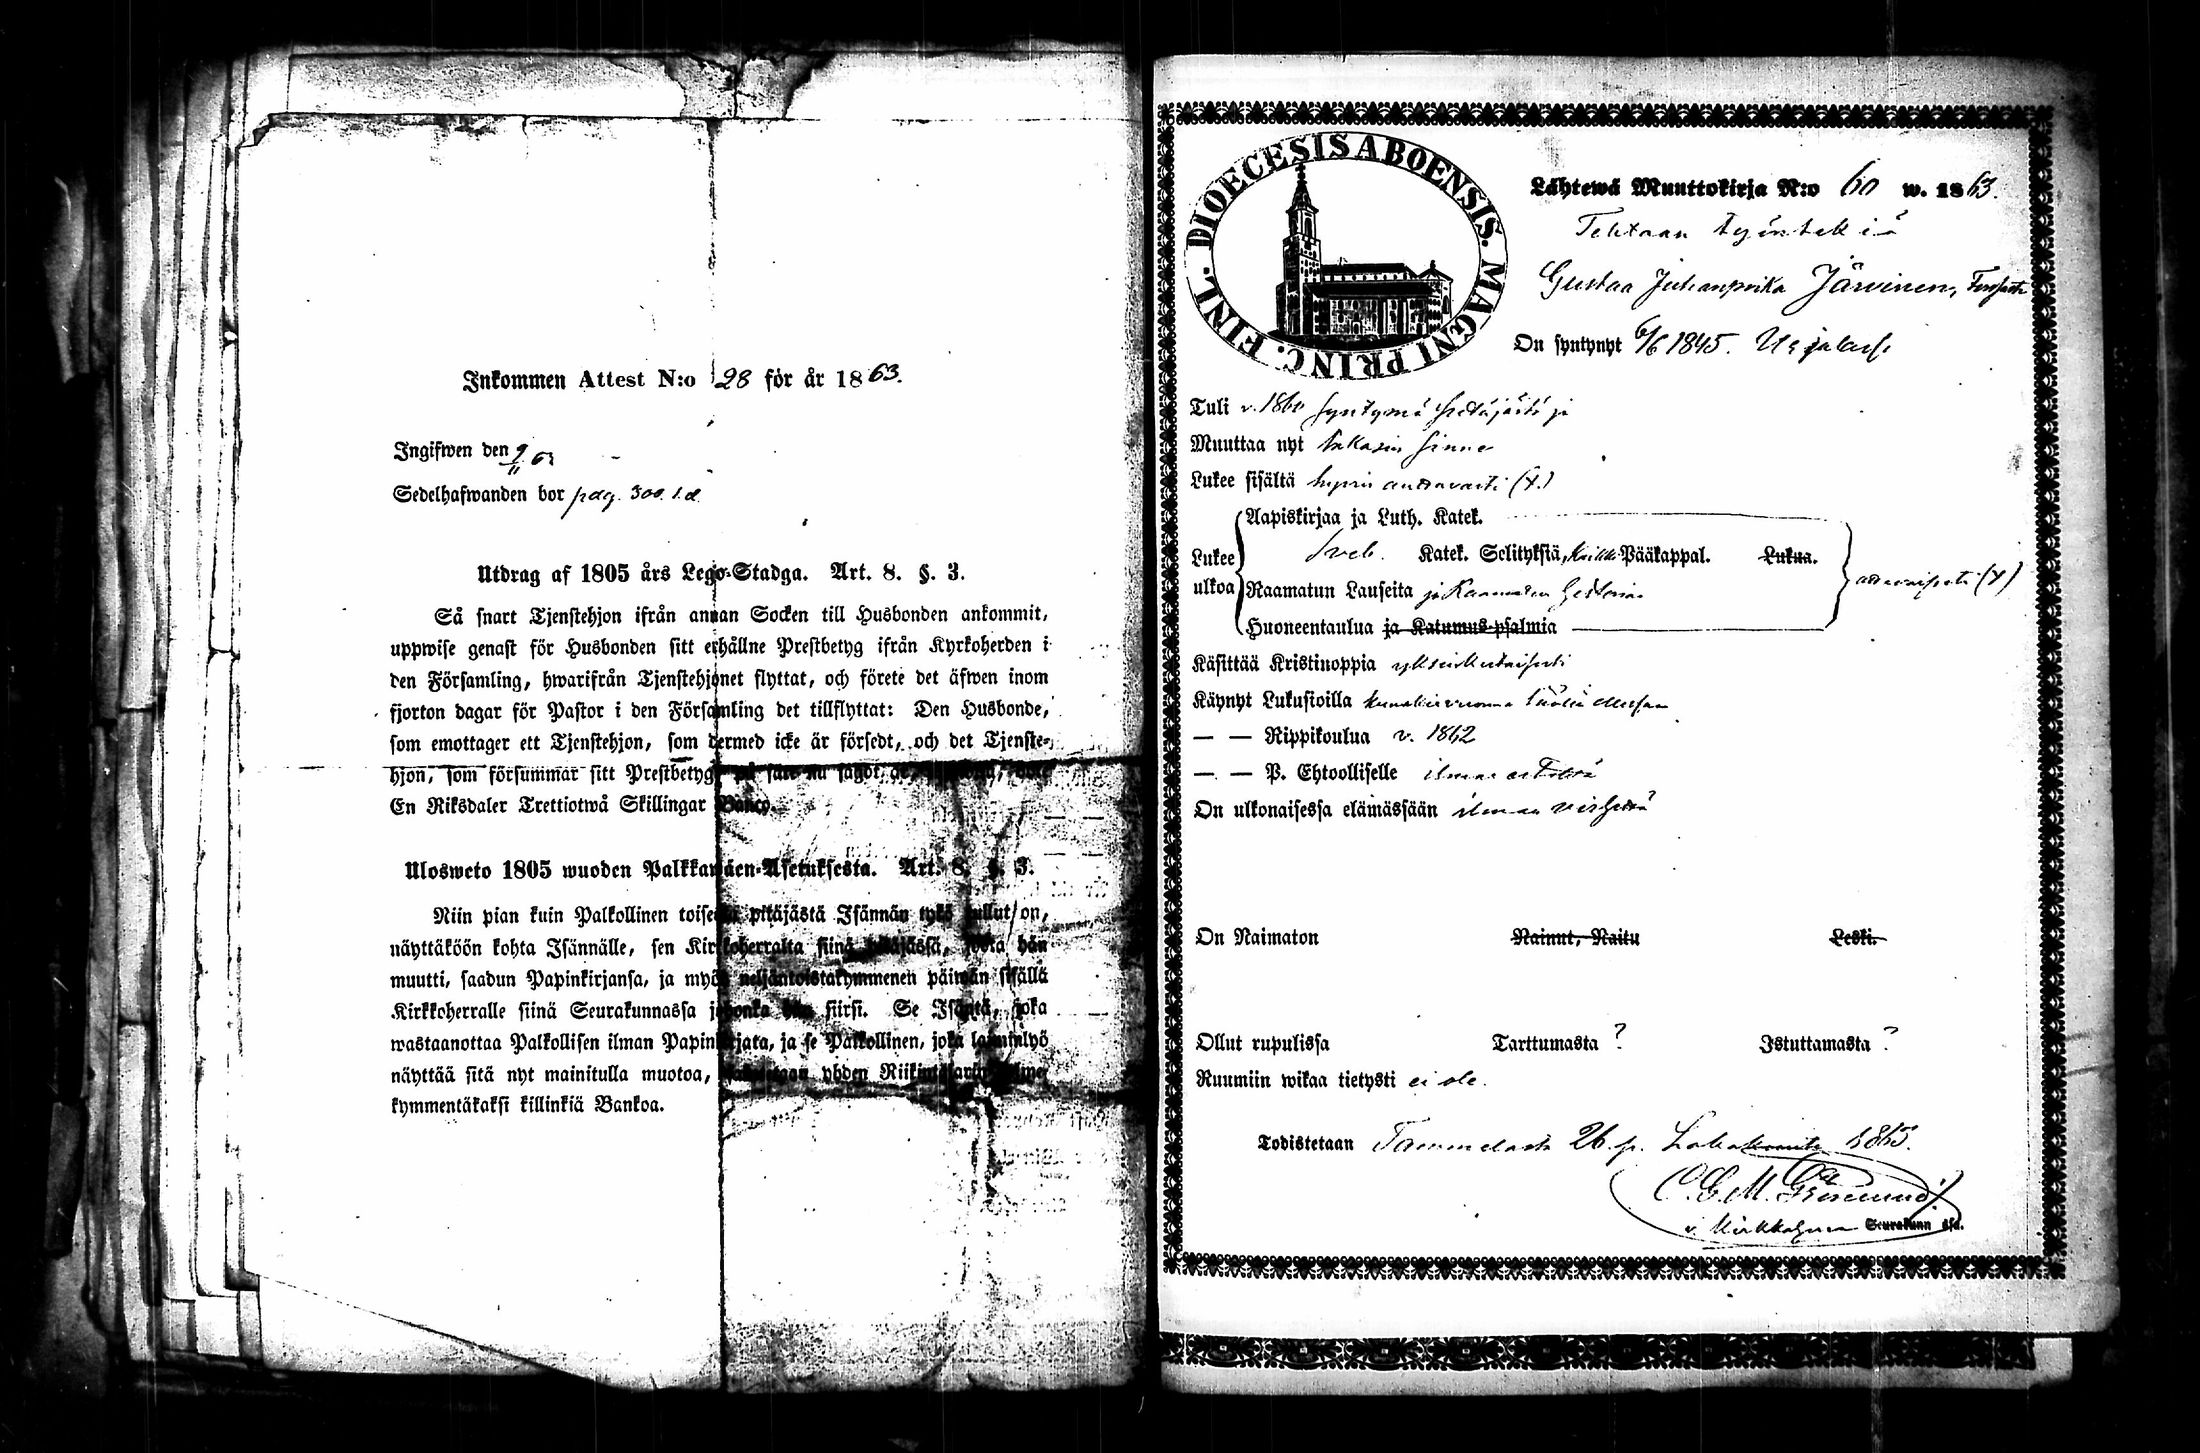 Inkommen Attest N:o 28 för år 1863.
Ingifwen den 9/11 63
Sedelhafwanden bor pag. 300. s.d.
Utdrag af 1805 års Lego-Stadga. Art. 8. §. 3.
Så snart Tjenstehjon ifrån annan Socken till Husbonden ankommit,
uppwise genast för Husbonden sitt erhållne Prestbetyg ifrån Kyrkoherden i
den Församling, hwarifrån Tjenstehjonet flyttat, och förete det äfwen inom
fjorton dagar för Pastor i den Församling det tillflyttat: Den Husbonde,
som emottager ett Tjenstehjon, som dermed icke är försedt, och det Tjenste-
hjon, som försummar sitt Prestbetyg på sätt nu sagdt
En Riksdaler Trettiotwå Skillingar Banco.
Ulosweto 1805 wuoden Palkkawäen-Asetuksesta. Art. 8. §. 3.
Niin pian kuin Palkollinen toisesta pitäjästä Isännän tykö tullut on,
näyttäköön kohta Isännälle, sen Kirkkoherralta siinä pitäjässä, josta hän
muutti, saadun Papinkirjansa, ja myös neljäntoistakymmenen päiwän sisällä
Kirkkoherralle siinä Seurakunnassa johonka hän siirsi. Se Isäntä, joka
wastaanottaa Palkollisen ilman Papinkirjata, ja se Palkollinen, joka laiminlyö
näyttää sitä nyt mainitulla muotoa, yhden Riikintalarin
kymmentäkaksi killinkiä Bankoa.
DIOECESIS ABOENSIS. MAGNI PRINC. FINL.
Lähtewä Muuttokirja N:o 60 w. 1863.
Tehtaan työntekiä
Gustaa Juhanpoika Järvinen,
On syntynyt 6/6 1845. Urjalassa
Tuli v. 1860 syntymä pitäjästä
Muuttaa nyt takasin sinne
Lukee sisältä hywin auttavasti (x.)
Aapiskirjaa ja Luth. Katek.
Lukee Sveb. Katek. Selityksiä, kaikki Pääkappal. Lukua.
ulkoa Raamatun Lauseita ja Raamatun Historia
Huoneentaulua ja Katumus-psalmia
Käsittää Kristinoppia yksinkertaisesti
Käynyt Lukusioilla
— — Rippikoulua v. 1862
— — P. Ehtoolliselle ilman estettä
On ulkonaisessa elämässään ilman virhettä
On Naimaton Nainut, Naitu Leski.
Ollut rupulissa Tarttumasta ? Istuttamasta ?
Ruumiin wikaa tietysti ei ole.
Todistetaan Tammelasta 26 p. Lokakuuta 1863.
C. G. M.
v. Kirkkoherra Seurakunnassa.